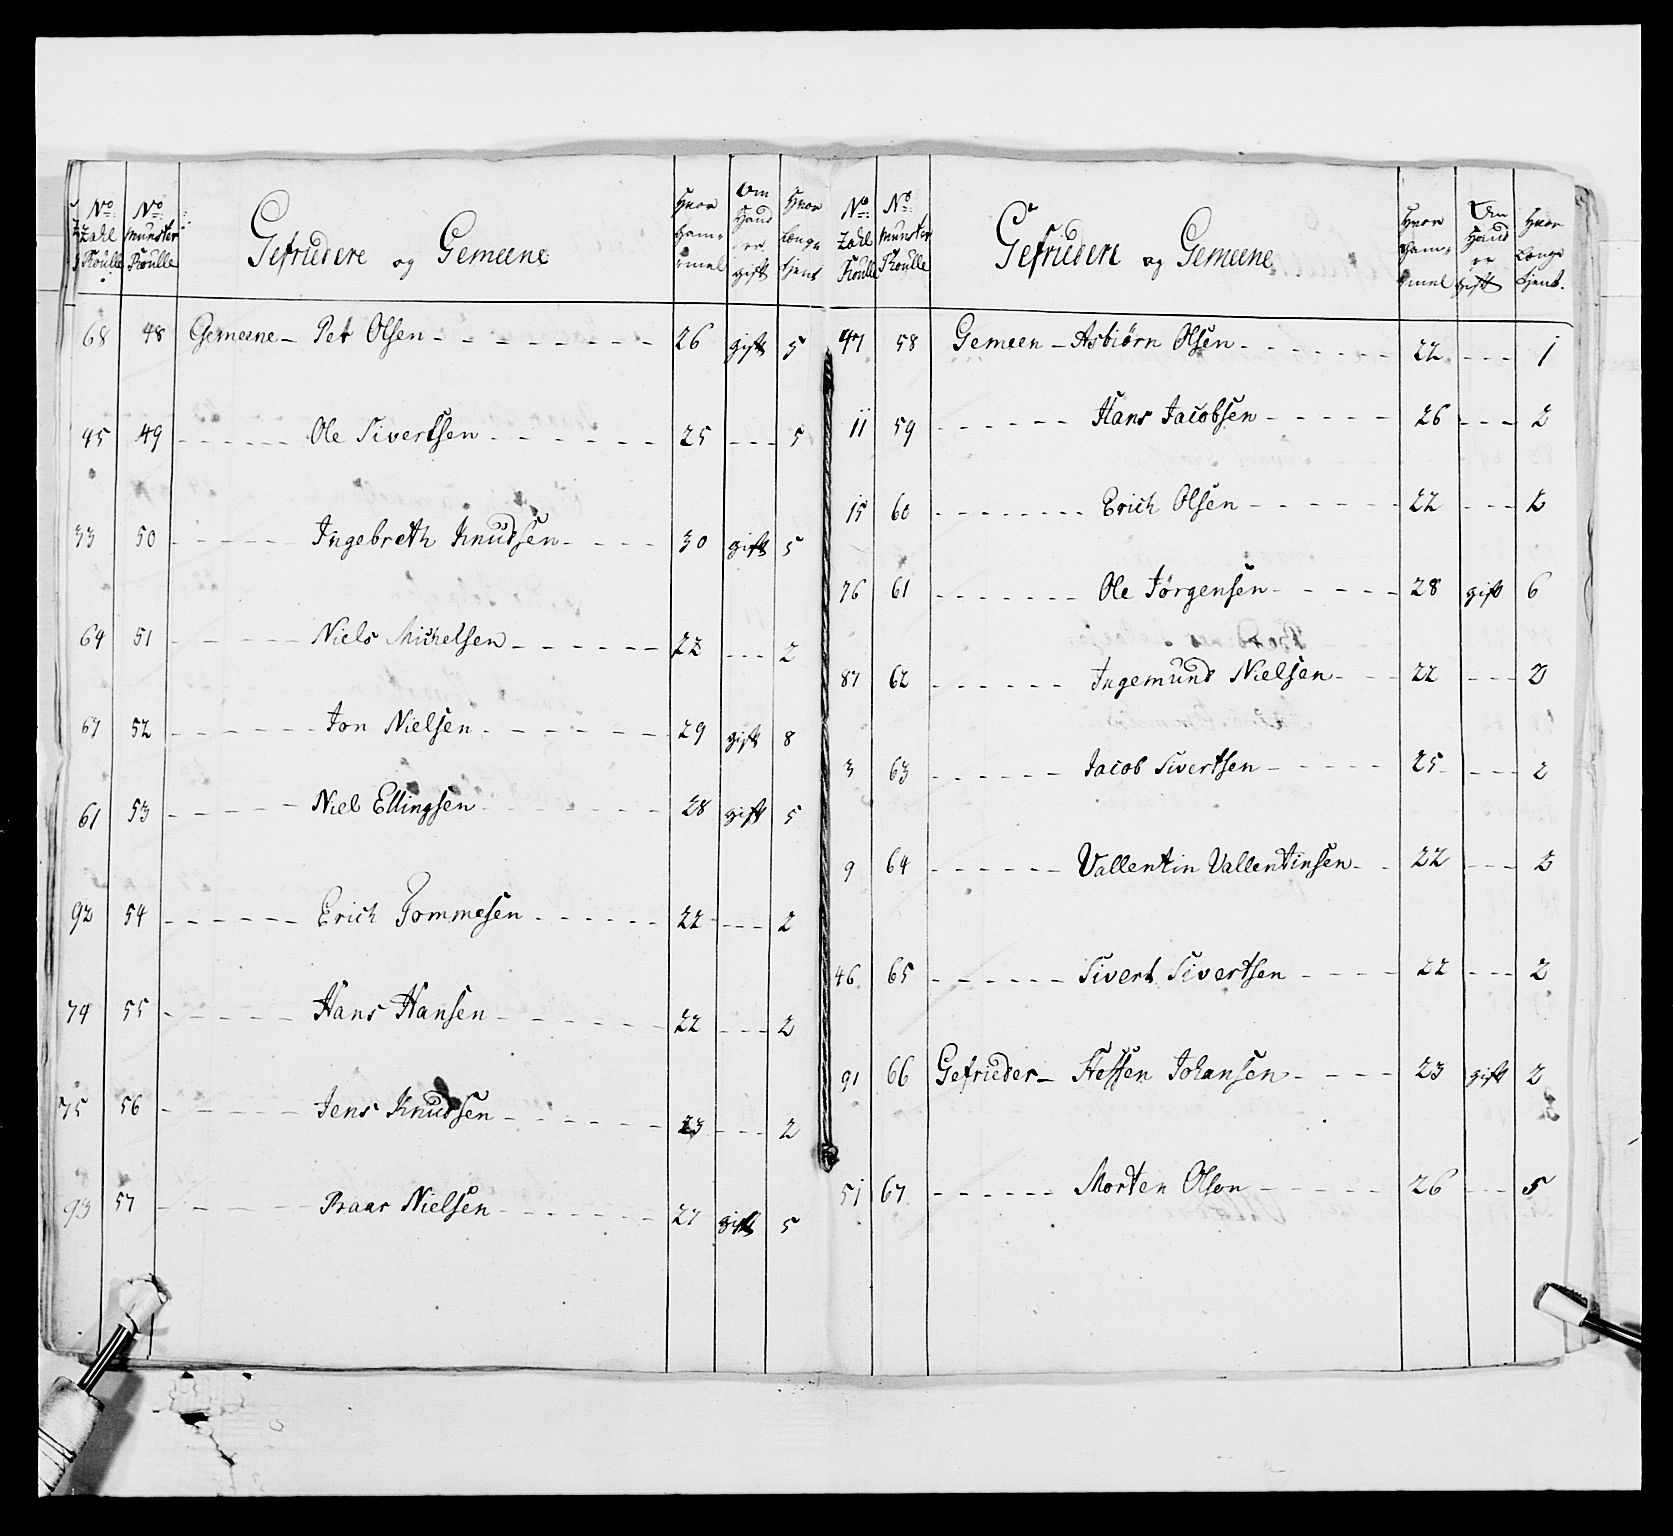 No: Zahl Roulle | No: Munster Roulle | Gefriedere og Gemeene | Hvor Gam̅mel | Om Hand er gift | Hvor Længe tjent
68 48 Gemeene - Pet Olsen 26 gift 5
45 49 Ole Sivertsen 25 --- 5
33 50 Ingebreth Knudsen 30 gift 5
64 51 Niels Michelsen 22 --- 2
67 52 Jon Nielsen 29 gift 8
61 53 Niel Ellingsen 28 gift 5
92 54 Erich Tommesen 22 --- 2
74 55 Hans Hansen 22 --- 2
75 56 Jens Knudsen 23 --- 2
93 57 Baar Nielsen 27 gift 5
No: Zahl Roulle | No: Munster Roulle | Gefriedere og Gemeene | Hvor Gammel | Om Hand er gift | Hvor Længe tjent.
47 58 Gemeen - Asbiørn Olsen 22 --- 1
11 59 Hans Jacobsen 26 --- 2
15 60 Erich Olsen 22 --- 2
76 61 Ole Jörgensen 28 gift 6
87 62 Ingemund Nielsen 22 --- 2
3 63 Jacob Sivertsen 25 --- 2
9 64 Vallentin Vallentinsen 22 --- 2
46 65 Sivert Sivertsen 22 --- 2
91 66 Gefrieder - Steffen Johansen 23 gift 2
51 67 Morten Olson 26 --- 5